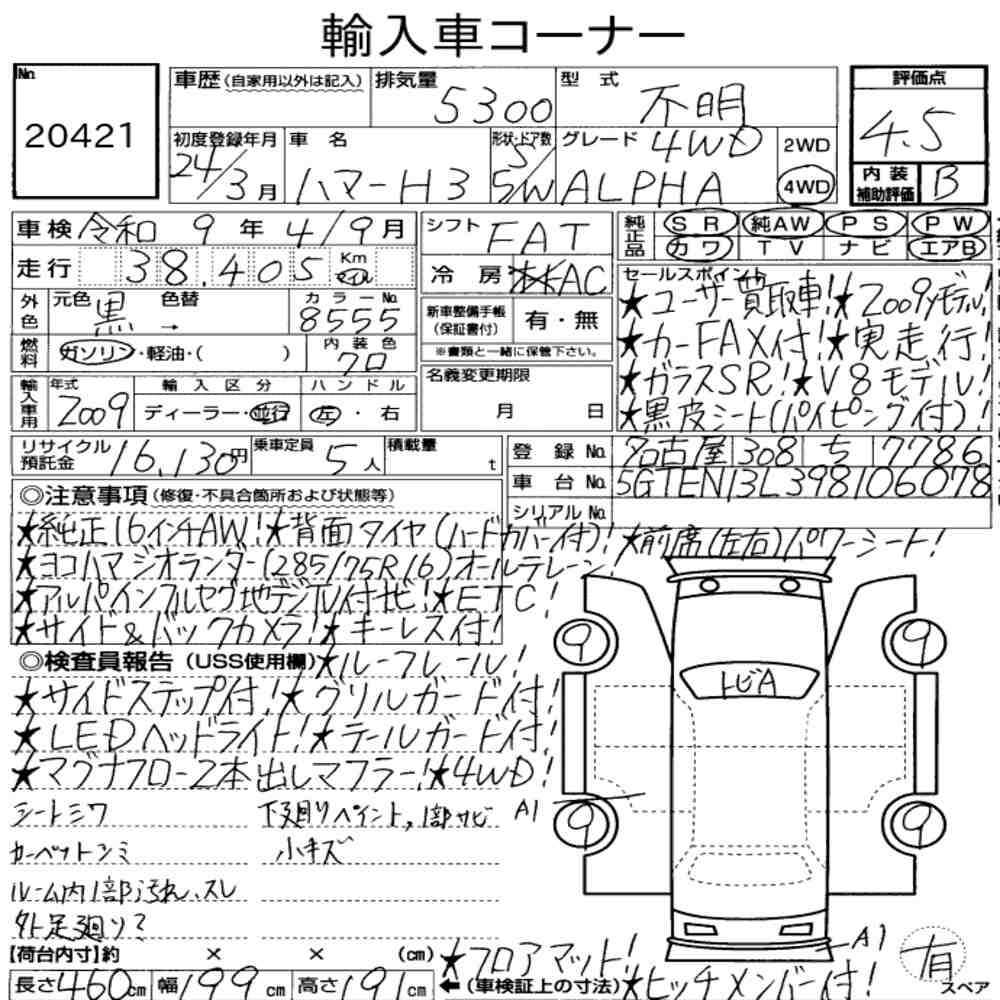 輸入車コーナー
No. 20421
車歴(自家用以外は記入) 排気量 5300 型式 不明 評価点 4.5
初度登録年月 24/3月 車名 ハマーH3 形状・ドア数 5/5W グレード 4WD ALPHA 2WD 4WD 内装補助評価 B
車検 令和 9年 4/9月 シフト FAT 純正品 SR 純AW PS PW
カワ TV ナビ エアB
走行 38,405 Km マイル 冷房 AC
セールスポイント
外色 元色 黒 → 色替 カラーNo. 8555 新車整備手帳(保証書付) 有・無
※書類と一緒に保管下さい。
★ユーザー買取車!★2009yモデル!
★カーFAX付!★実走行!
★ガラスSR!★V8モデル!
★黒皮シート(パイピング付)!
燃料 ガソリン・軽油・( ) 内装色 クロ
名義変更期限 月 日
輸入車用 年式 2009 輸入区分 ディーラー・並行 ハンドル 左・右
リサイクル預託金 16,130円 乗車定員 5人 積載量 t
登録No. 名古屋 308 ち 7786
車台No. 5GTEN13L398106078
シリアルNo.
◎注意事項(修復・不具合箇所および状態等)
★純正16インチAW!★背面タイヤ(ハードカバー付)!★前席(左右)パワーシート!
★ヨコハマジオランダー(285/75R16)オールテレーン!
★アルパインフルセグ地デジTV付ナビ!★ETC!
★サイド&バックカメラ!★キーレス付!
◎検査員報告(USS使用欄)★ルーフレール!
★サイドステップ付!★グリルガード付!
★LEDヘッドライト!★テールガード付!
★マグナフロー2本出しマフラー!★4WD!
シートシワ 下廻りペイント,1部サビ
カーペットシミ 小キズ
ルーム内1部汚れ、スレ
外足廻リ?
9 9
トビA
A1
9 9
A1
【荷台内寸】約 × × (cm) ★フロアマット!
長さ460cm 幅199cm 高さ191cm ←(車検証上の寸法)★ヒッチメンバー付!
有 スペア